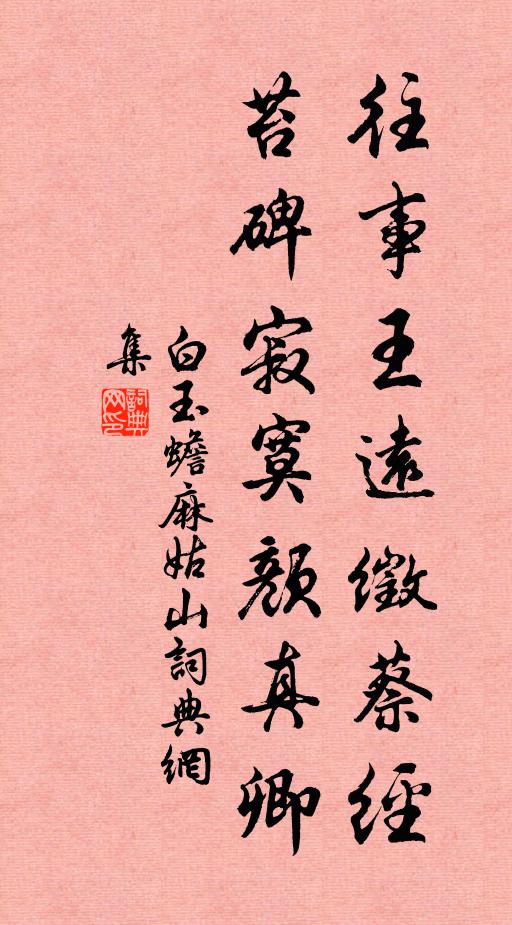 往事王遠徵蔡經
苔碑寂寞顏真卿
白玉蟾麻姑山詞典網
集
詞典网印